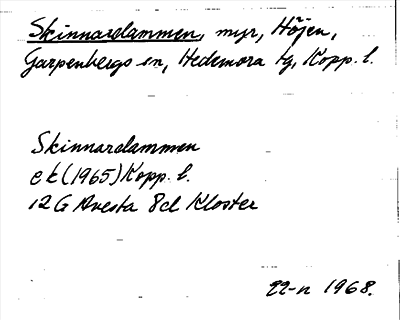 Skinnardammen, myr, Höjen,
Garpenbergs sn, Hedemora tg, Kopp. l.
Skinnardammen
ek (1965) Kopp. l.
12 G Avesta 8d Kloster
1968.